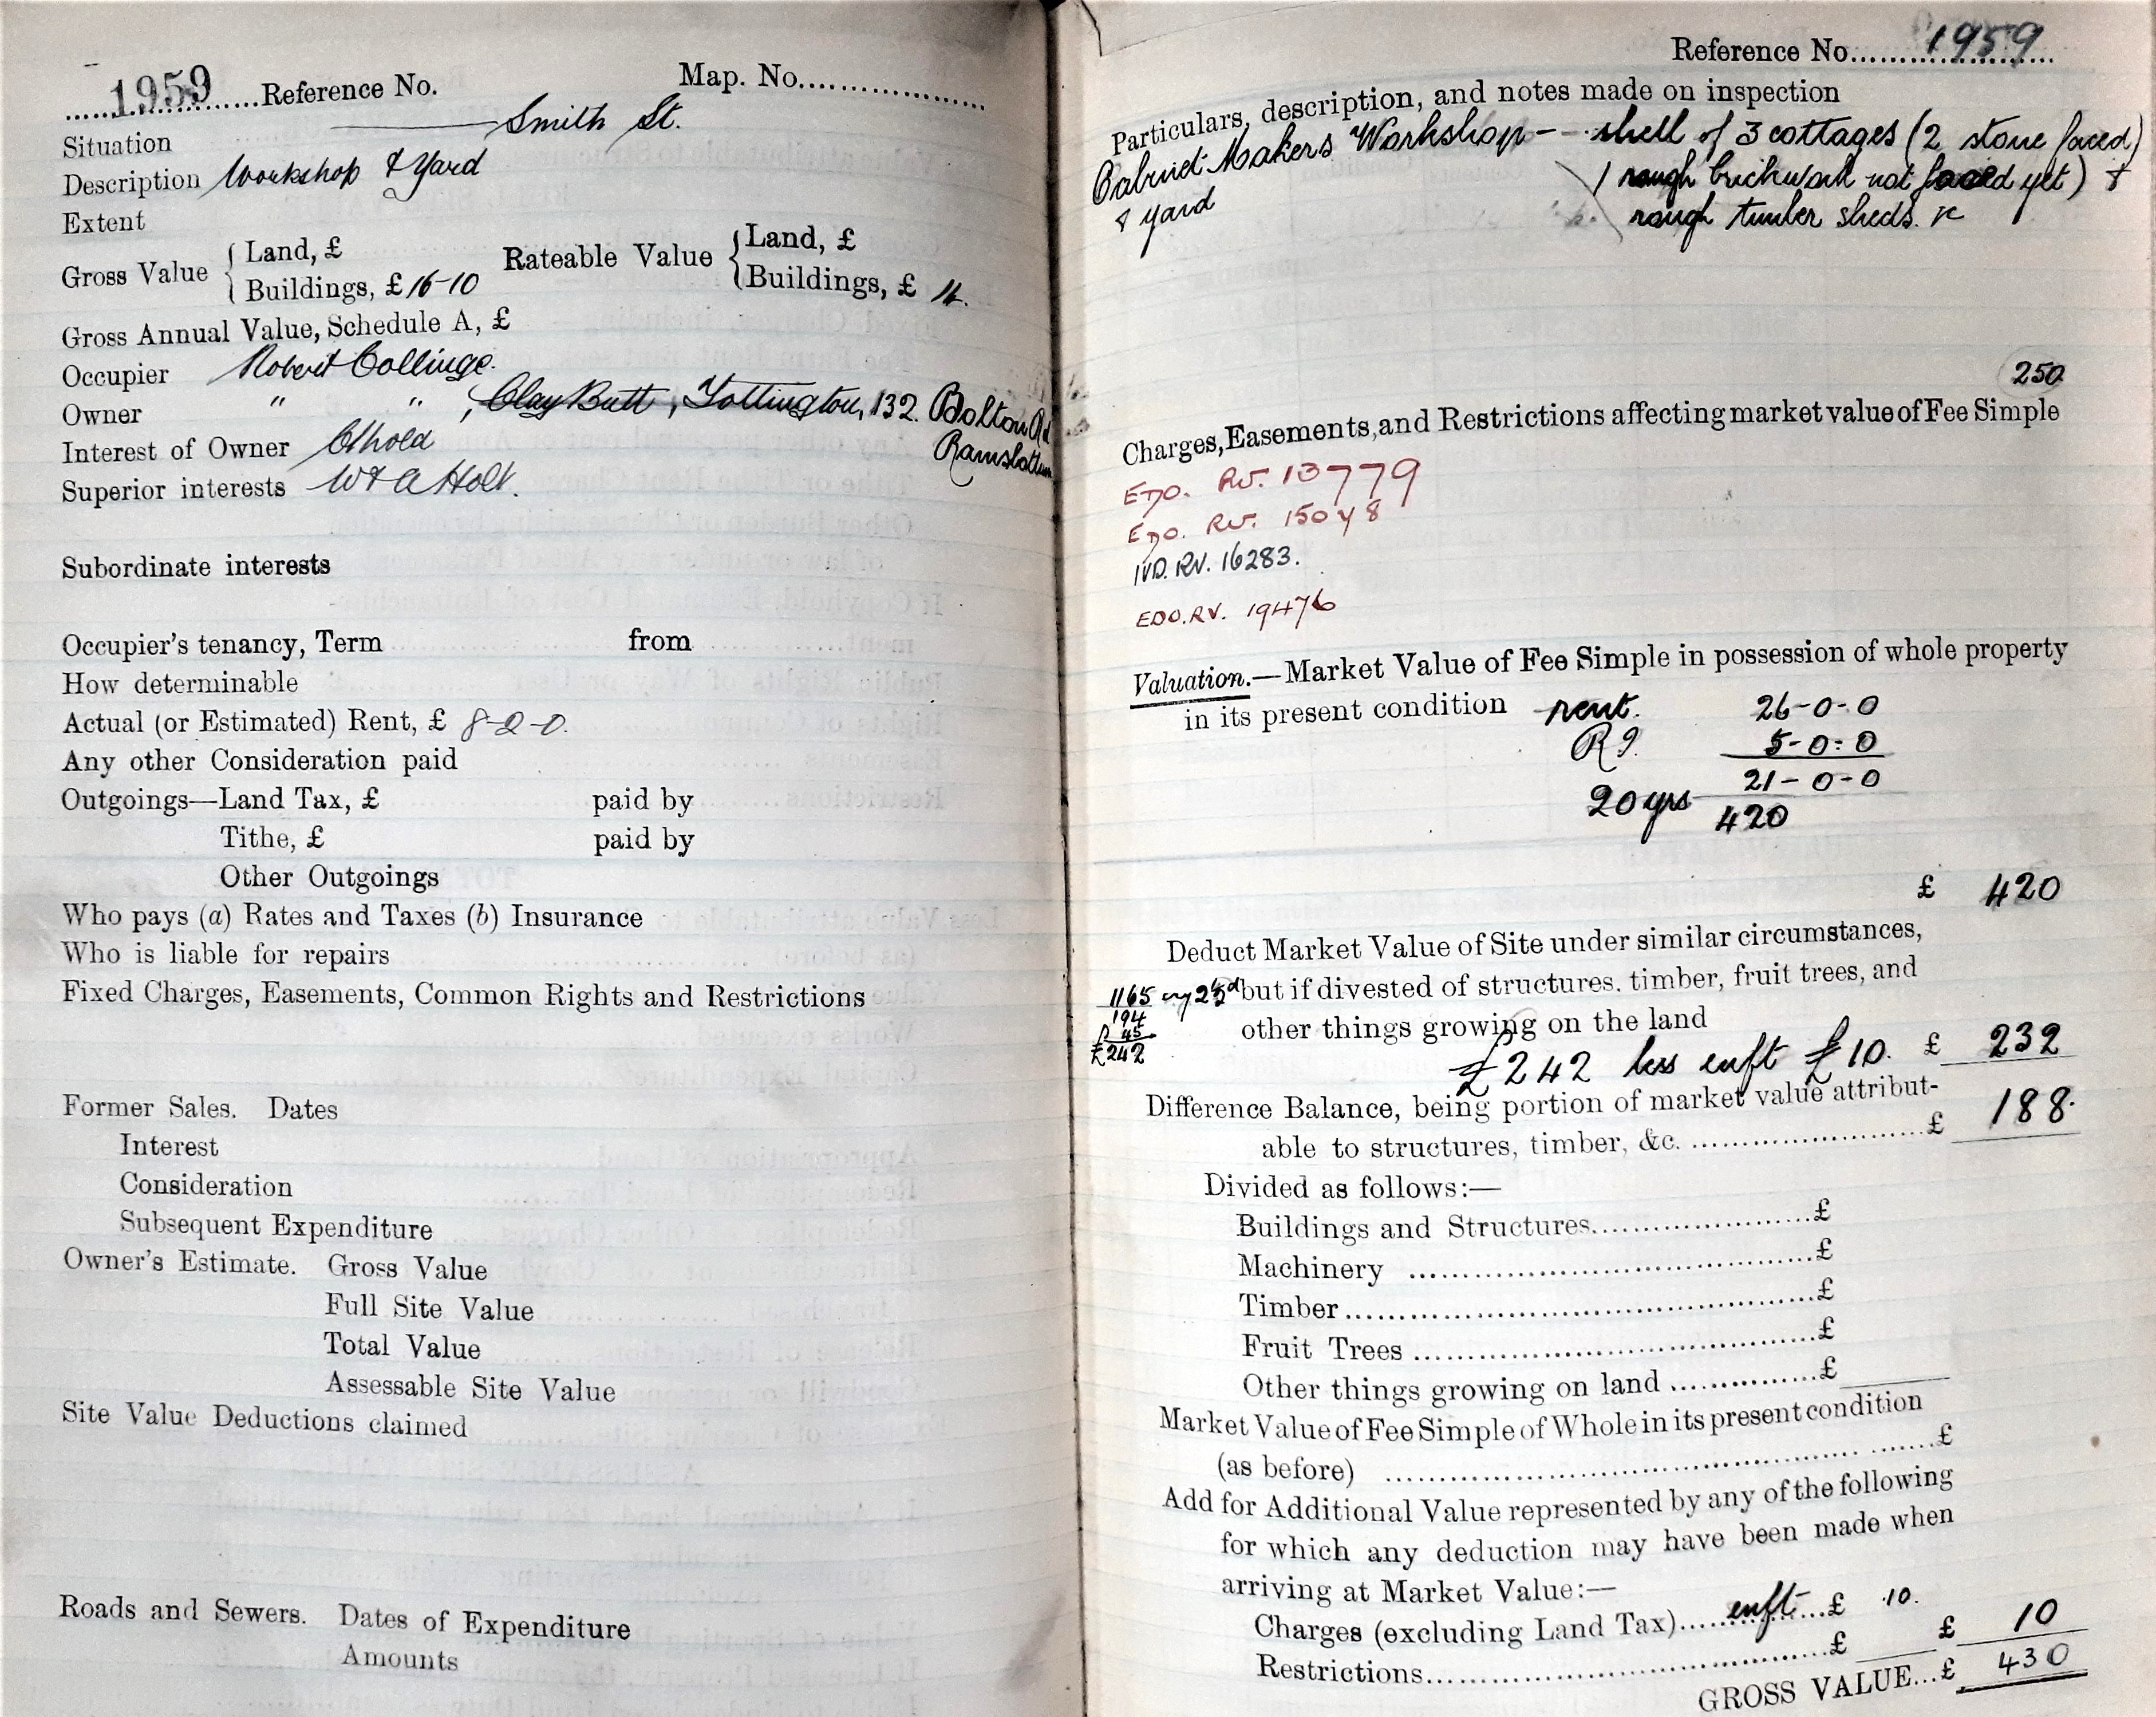 1959 Reference No. Map. No.
Situation Smith St.
Description Workshop & Yard
Extent
Gross Value { Land, £
Buildings, £ 16-10
Rateable Value { Land, £
Buildings, £
Gross Annual Value, Schedule A, £
Occupier Robert Collinge.
Owner " " , Clay Butt, Tottington, 132. Bolton Rd
Ramsbottom
Interest of Owner C'hold
Superior interests W & A Holt.
Subordinate interests
Occupier's tenancy, Term from
How determinable
Actual (or Estimated) Rent, £ 8-2-0.
Any other Consideration paid
Outgoings—Land Tax, £ paid by
Tithe, £ paid by
Other Outgoings
Who pays (a) Rates and Taxes (b) Insurance
Who is liable for repairs
Fixed Charges, Easements, Common Rights and Restrictions
Former Sales. Dates
Interest
Consideration
Subsequent Expenditure
Owner's Estimate. Gross Value
Full Site Value
Total Value
Assessable Site Value
Site Value Deductions claimed
Roads and Sewers. Dates of Expenditure
Amounts
Reference No. 1959
Particulars, description, and notes made on inspection
Cabinet Makers Workshop - shell of 3 cottages (2 stone faced)
1 rough brickwork not faced yet) &
& yard rough timber sheds. &c
250
Charges, Easements, and Restrictions affecting market value of Fee Simple
EDO. RV. 13779
EDO. RV. 15048
IVD. RV. 16283.
EDO. RV. 19476
Valuation.—Market Value of Fee Simple in possession of whole property
in its present condition rent. 26-0-0
5-0-0
21-0-0
20 yrs 420
£ 420
Deduct Market Value of Site under similar circumstances,
1165 but if divested of structures. timber, fruit trees, and
194
45
other things growing on the land
£242
£242 less enft £10. £ 232
Difference Balance, being portion of market value attribut-
able to structures, timber, &c. £ 188.
Divided as follows:—
Buildings and Structures £
Machinery £
Timber £
Fruit Trees £
Other things growing on land £
Market Value of Fee Simple of Whole in its present condition
(as before) £
Add for Additional Value represented by any of the following
for which any deduction may have been made when
arriving at Market Value:—
Charges (excluding Land Tax) enft £ 10.
Restrictions £ £ 10
GROSS VALUE...£ 430